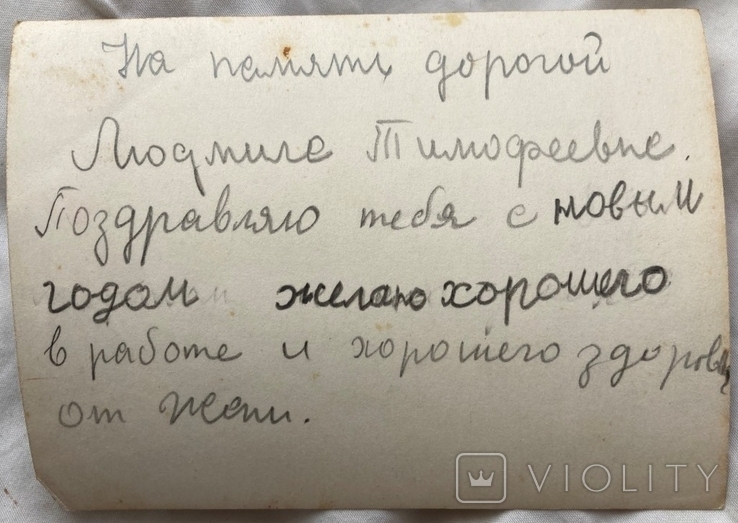 На память дорогой
Людмиле Тимофеевне.
Поздравляю тебя с новым
годом желаю хорошего
в работе и хорошего здоровья
от
VIOLITY